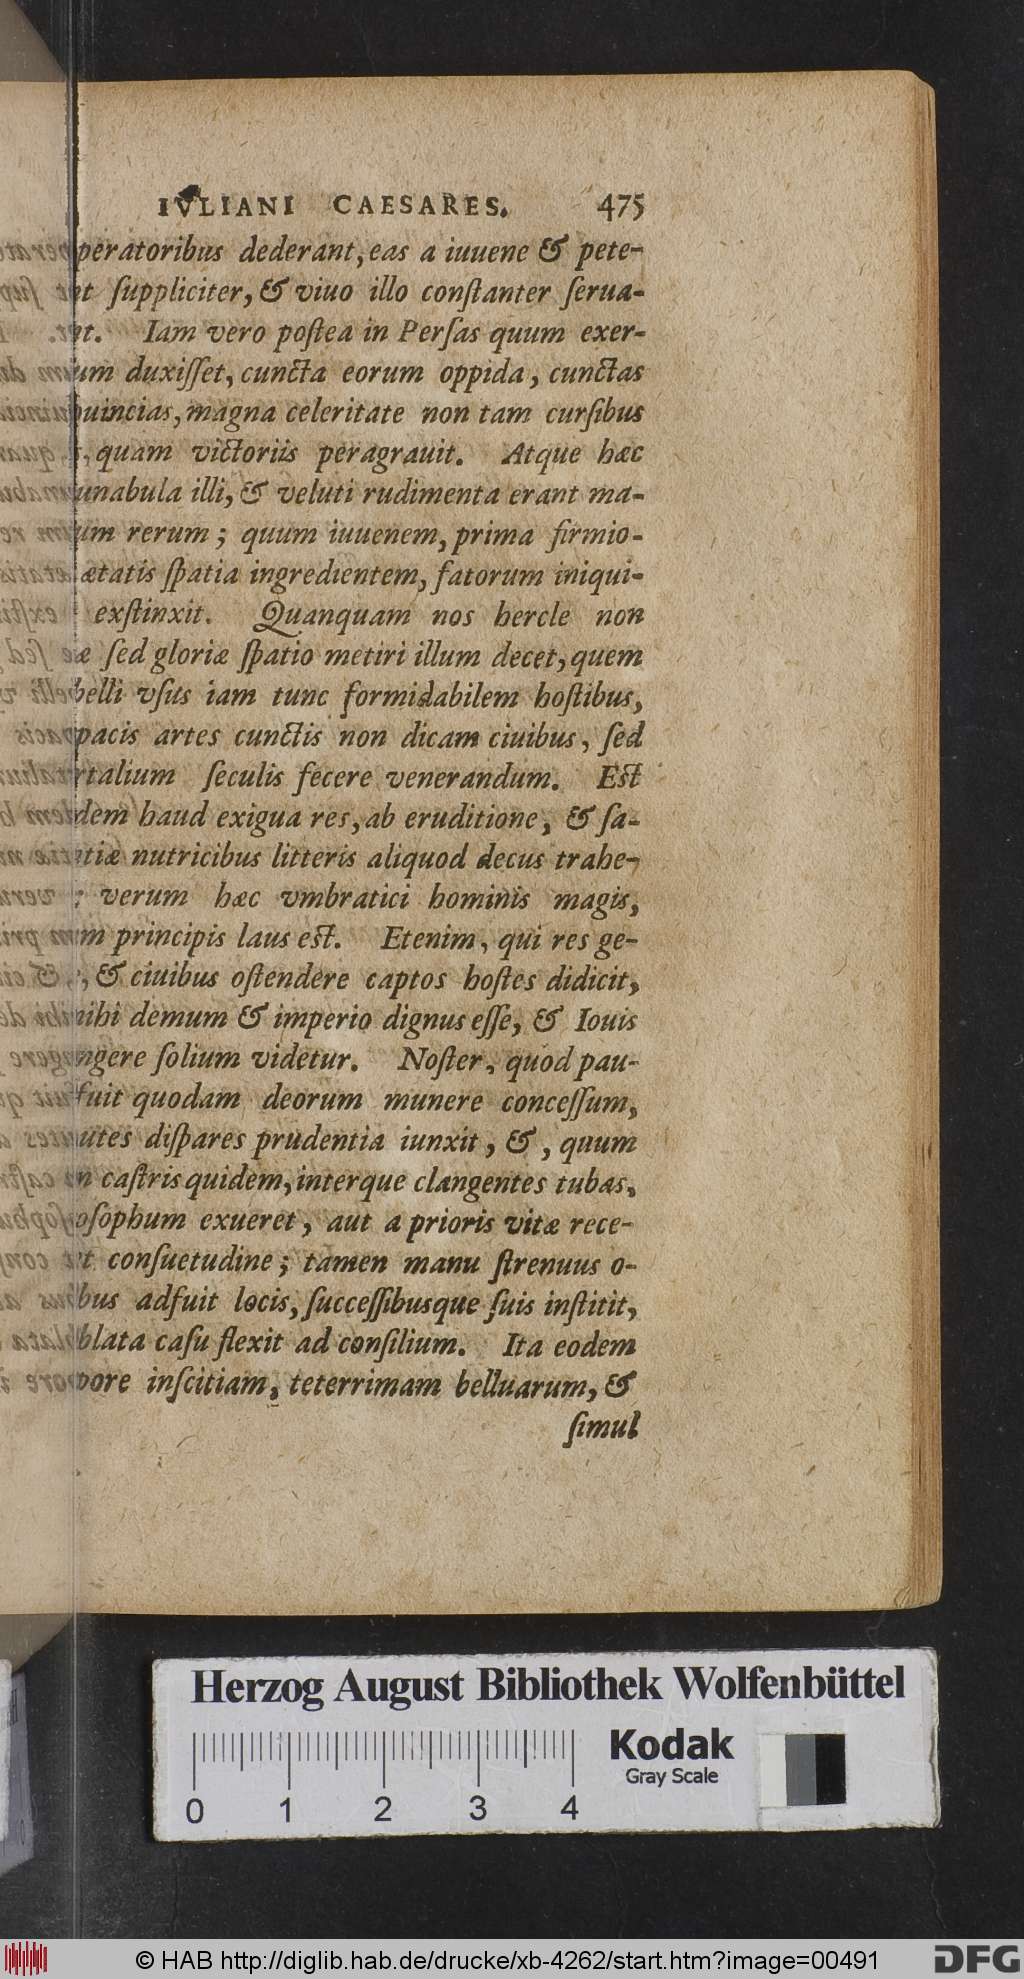 IVLIANI CAESARES. 475
peratoribus dederant, eas a iuuene & pete-
nt ſuppliciter, & viuo illo conſtanter ſerua-
nt. Iam vero poſtea in Perſas quum exer-
um duxiſſet, cuncta eorum oppida, cunctas
uincias, magna celeritate non tam curſibus
, quam victoriis peragrauit. Atque hæc
unabula illi, & veluti rudimenta erant ma-
um rerum; quum iuuenem, prima firmio-
ætatis ſpatia ingredientem, fatorum iniqui-
exſtinxit. Quanquam nos hercle non
æ ſed gloriæ ſpatio metiri illum decet, quem
belli vſus iam tunc formidabilem hoſtibus,
pacis artes cunctis non dicam ciuibus, ſed
rtalium ſeculis fecere venerandum. Eſt
dem haud exigua res, ab eruditione, & ſa-
tiæ nutricibus litteris aliquod decus trahe-
: verum hæc vmbratici hominis magis,
m principis laus eſt. Etenim, qui res ge-
, & ciuibus oſtendere captos hoſtes didicit,
mihi demum & imperio dignus eſſe, & Iouis
ngere ſolium videtur. Noſter, quod pau-
fuit quodam deorum munere conceſſum,
utes diſpares prudentia iunxit, &, quum
n caſtris quidem, interque clangentes tubas,
oſophum exueret, aut a prioris vitæ rece-
t conſuetudine; tamen manu ſtrenuus o-
bus adfuit locis, ſucceſſibusque ſuis inſtitit,
blata caſu flexit ad conſilium. Ita eodem
pore inſcitiam, teterrimam belluarum, &
ſimul
Herzog August Bibliothek Wolfenbüttel
Kodak
Gray Scale
0 1 2 3 4
© HAB http://diglib.hab.de/drucke/xb-4262/start.htm?image=00491
DFG